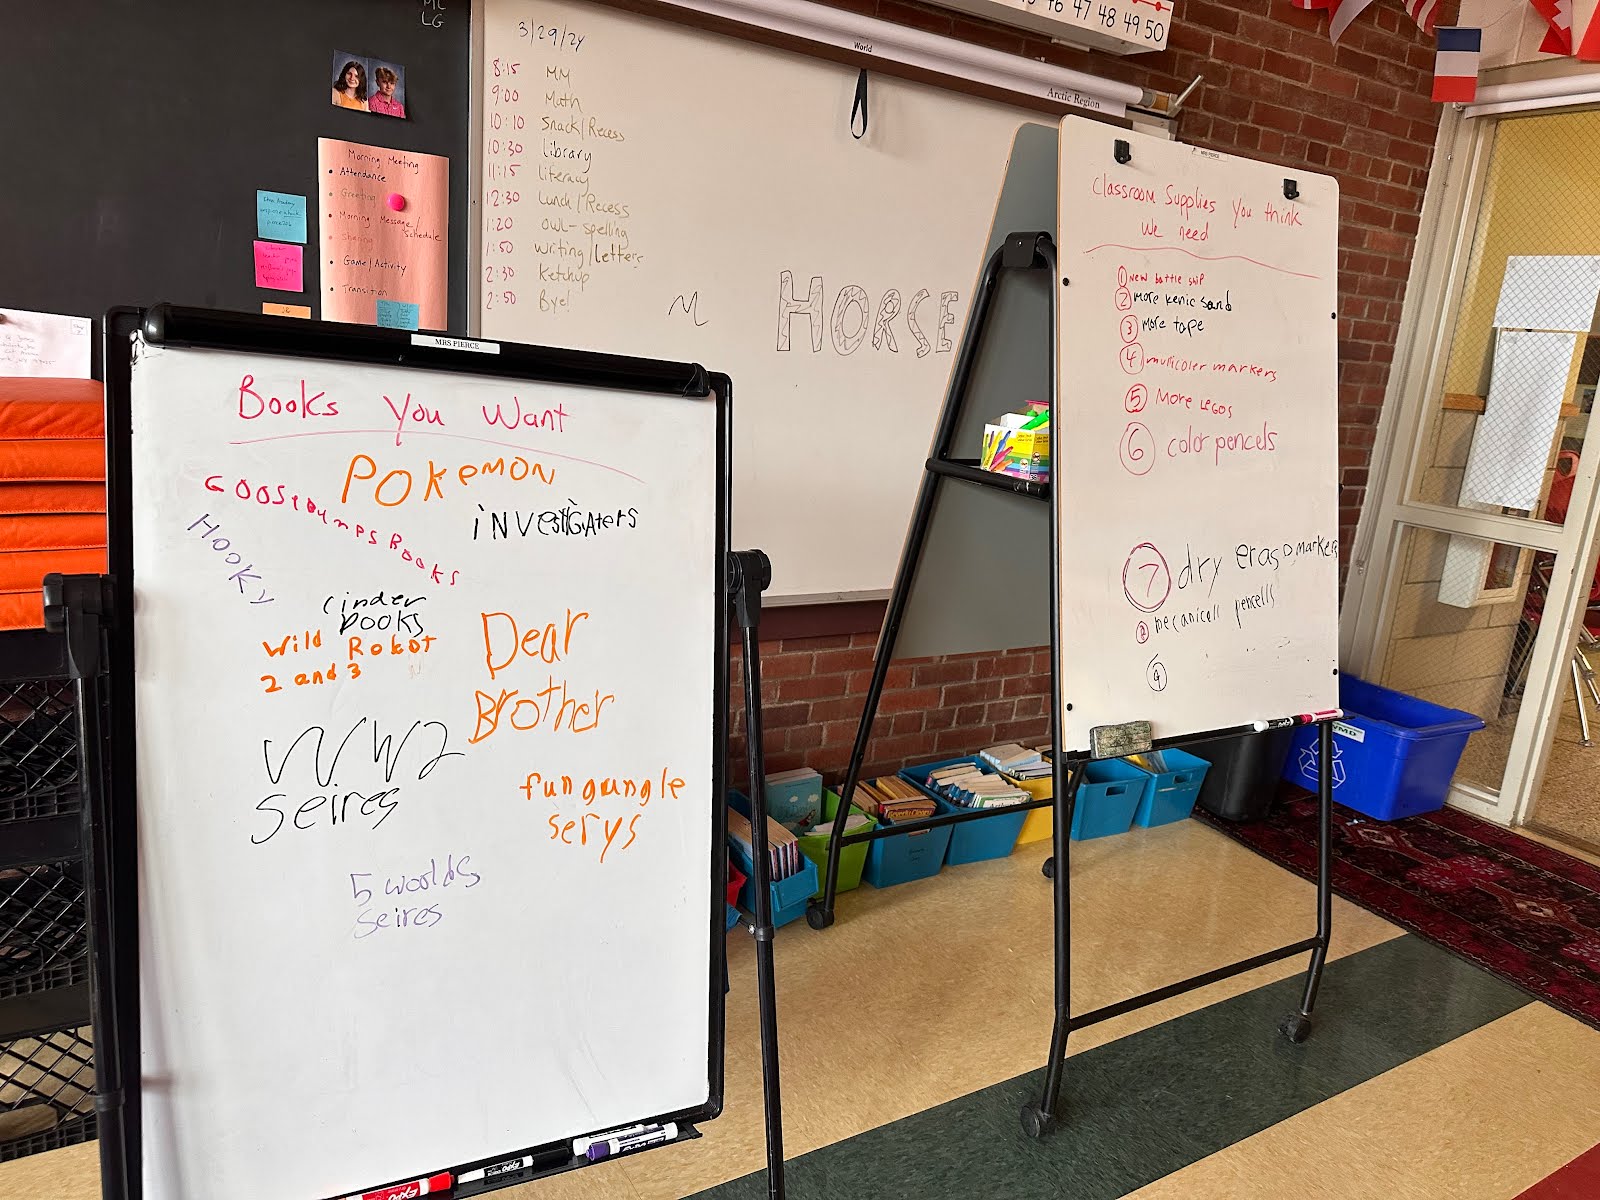 MC
LG
3/29/24
8:15 MM
9:00 Math
10:10 Snack/Recess
10:30 library
11:15 literacy
12:30 Lunch/Recess
1:20 owl-spelling
1:50 writing/Letters
2:30 Ketchup
2:50 Bye!
M
HORSE
World
Arctic Region
46 47 48 49 50
Morning Meeting
• Attendance
• Greeting
• Morning Message/
Schedule
• Sharing
• Game/Activity
• Transition
MRS PIERCE
Books You Want
POKEMON
GOOSEBUMPS BOOKS
iNVEStiGAters
HOOKY
cinder
books
Wild Robot
2 and 3
Dear
Brother
WW2
seires
fungungle
serys
5 woolds
seires
EXPO
MRS PIERCE
Classroom Supplies You think
We need
1 new battle ship
2 more kenic sand
3 more tape
4 mulicoler markers
5 More LEGOS
6 color pencels
7 dry erase markers
8 mecanicell pencells
9